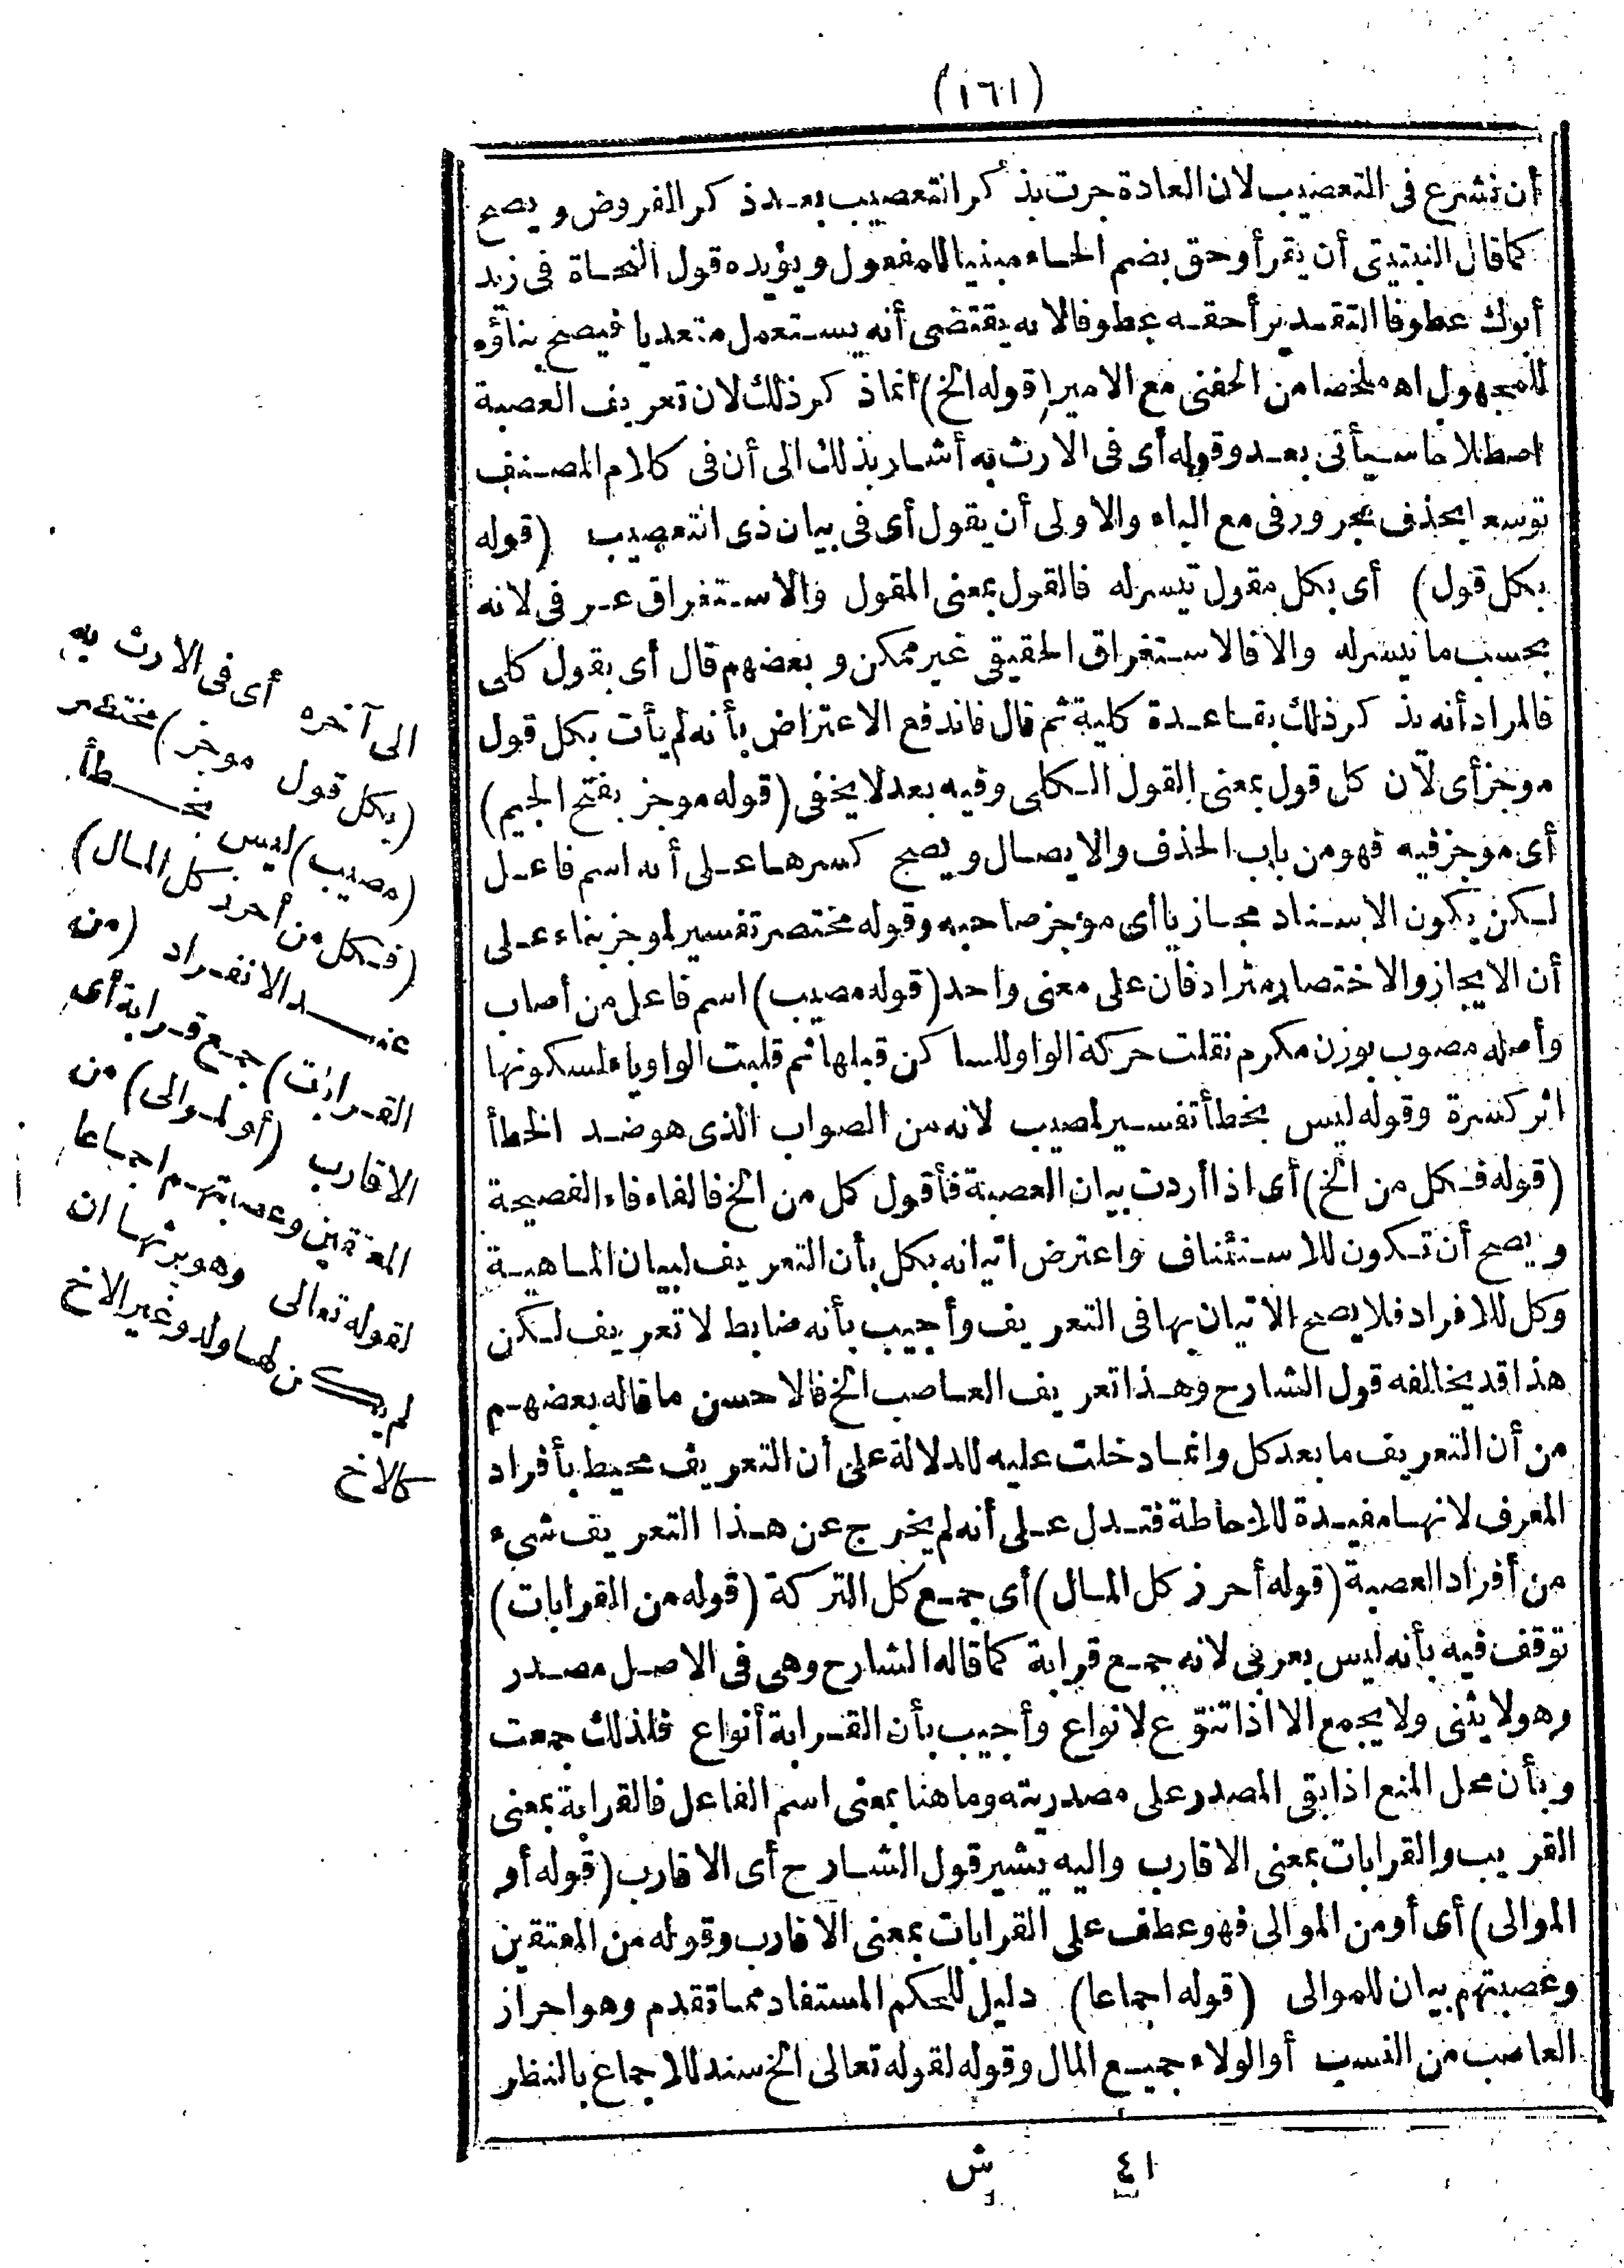 (١٦١)
أن نشرع فى التعصيب لان العادة جرت بذكر التعصيب بعد ذكر الفروض ويصح
كما قال النبتيتى أن يقرأ وحق بضم الحاء مبنيا للمفعول ويؤيده قول النحاة فى زيد
أبوك عطوفا التقدير أحقه عطوفا لانه يقتضى أنه يستعمل متعديا فيصح بناؤه
للمجهول اه ملخصا من الحفنى مع الامير (قوله الخ) انماذكر ذلك لان تعريف العصبة
اصطلاحا سيأتى بعد وقوله أى فى الارث به أشار بذلك الى أن فى كلام المصنف
توسعا بحذف مجرور فى مع الباء والاولى أن يقول أى فى بيان ذى التعصيب (قوله
بكل قول) أى بكل مقول تيسر له فالقول بمعنى المقول والاستغراق عرفى لانه
بحسب ما تيسر له والا فالاستغراق الحقيقى غير ممكن وبعضهم قال أى بقول كلى
فالمراد أنه يذكر ذلك بقاعدة كلية ثم قال فاندفع الاعتراض بأنه لم يأت بكل قول
موجز أى لأن كل قول بمعنى القول الكلى وفيه بعد لا يخفى (قوله موجز بفتح الجيم)
أى موجز فيه فهو من باب الحذف والايصال ويصح كسرها على أنه اسم فاعل
لكن يكون الاسناد مجازيا أى موجز صاحبه وقوله مختصر تفسير لموجز بناء على
أن الايجاز والاختصار مترادفان على معنى واحد (قوله مصيب) اسم فاعل من أصاب
وأصله مصوب بوزن مكرم نقلت حركة الواو للساكن قبلها ثم قلبت الواو ياء لسكونها
اثر كسرة وقوله ليس بخطأ تفسير لمصيب لانه من الصواب الذى هو ضد الخطأ
(قوله فكل من الخ) أى اذا أردت بيان العصبة فأقول كل من الخ فالفاء فاء الفصيحة
ويصح أن تكون للاستئناف واعترض اتيانه بكل بأن التعريف لبيان الماهية
وكل للافراد فلا يصح الاتيان بها فى التعريف وأجيب بأنه ضابط لا تعريف لكن
هذا قد يخالفه قول الشارح وهذا تعريف العاصب الخ فالاحسن ما قاله بعضهم
من أن التعريف ما بعد كل وانما دخلت عليه للدلالة على أن التعريف محيط بأفراد
المعرف لانها مفيدة للاحاطة فتدل على أنه لم يخرج عن هذا التعريف شىء
من أفراد العصبة (قوله أحرز كل المال) أى جمع كل التركة (قوله من القرابات)
توقف فيه بأنه ليس بعربى لانه جمع قرابة كما قاله الشارح وهى فى الاصل مصدر
وهو لا يثنى ولا يجمع الا اذا تنوع لانواع وأجيب بأن القرابة أنواع فلذلك جمعت
وبأن محل المنع اذا بقى المصدر على مصدريته وما هنا بمعنى اسم الفاعل فالقرابة بمعنى
القريب والقرابات بمعنى الاقارب واليه يشير قول الشارح أى الاقارب (قوله أو
الموالى) أى أو من الموالى فهو عطف على القرابات بمعنى الاقارب وقوله من المعتقين
وعصبتهم بيان للموالى (قوله اجماعا) دليل للحكم المستفاد مما تقدم وهو احراز
العاصب من النسب أو الولاء جميع المال وقوله لقوله تعالى الخ سند للاجماع بالنظر
أى فى الارث به
الى آخره
(بكل قول موجز) مختصر
(مصيب) ليس بخطأ
(فكل من أحرز كل المال)
عند الانفراد (من
القرابات) جمع قرابة أى
الاقارب (أو الموالى) من
المعتقين وعصبتهم اجماعا
لقوله تعالى وهو يرثها ان
لم يكن لها ولد وغير الاخ
كالاخ
٤١ ش